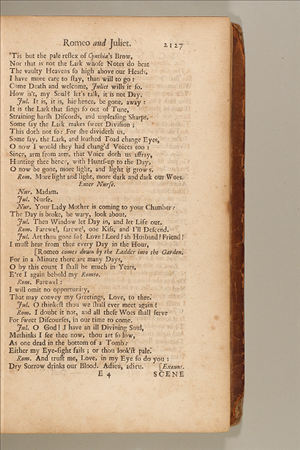 Romeo and Juliet. 2127
'Tis but the pale reflex of Cynthia's Brow,
Nor that is not the Lark whose Notes do beat
The vaulty Heavens so high above our Heads,
I have more care to stay, than will to go:
Come Death and welcome, Juliet wills it so.
How is't, my Soul? let's talk, it is not Day.
Jul. It is, it is, hie hence, be gone, away:
It is the Lark that sings so out of Tune,
Straining harsh Discords, and unpleasing Sharps.
Some say the Lark makes sweet Division;
This doth not so: For she divideth us.
Some say, the Lark, and loathed Toad change Eyes,
O now I would they had chang'd Voices too:
Since, arm from arm, that Voice doth us affray,
Hunting thee hence, with Hunts-up to the Day,
O now be gone, more light, and light it grows.
Rom. More light and light, more dark and dark our Woes.
Enter Nurse.
Nur. Madam.
Jul. Nurse.
Nur. Your Lady Mother is coming to your Chamber:
The Day is broke, be wary, look about.
Jul. Then Window let Day in, and let Life out.
Rom. Farewel, farewel, one Kiss, and I'll Descend.
Jul. Art thou gone so? Love! Lord! ah Husband! Friend!
I must hear from thee every Day in the Hour,
[Romeo comes down by the Ladder into the Garden.
For in a Minute there are many Days,
O by this count I shall be much in Years,
E're I again behold my Romeo.
Rom. Farewel:
I will omit no opportunity,
That may convey my Greetings, Love, to thee.
Jul. O thinkest thou we shall ever meet again?
Rom. I doubt it not, and all these Woes shall serve
For sweet Discourses, in our time to come.
Jul. O God! I have an ill Divining Soul,
Methinks I see thee now, thou art so low,
As one dead in the bottom of a Tomb:
Either my Eye-sight fails; or thou look'st pale.
Rom. And trust me, Love, in my Eye so do you:
Dry Sorrow drinks our Blood. Adieu, adieu. [Exeunt.
E 4 SCENE